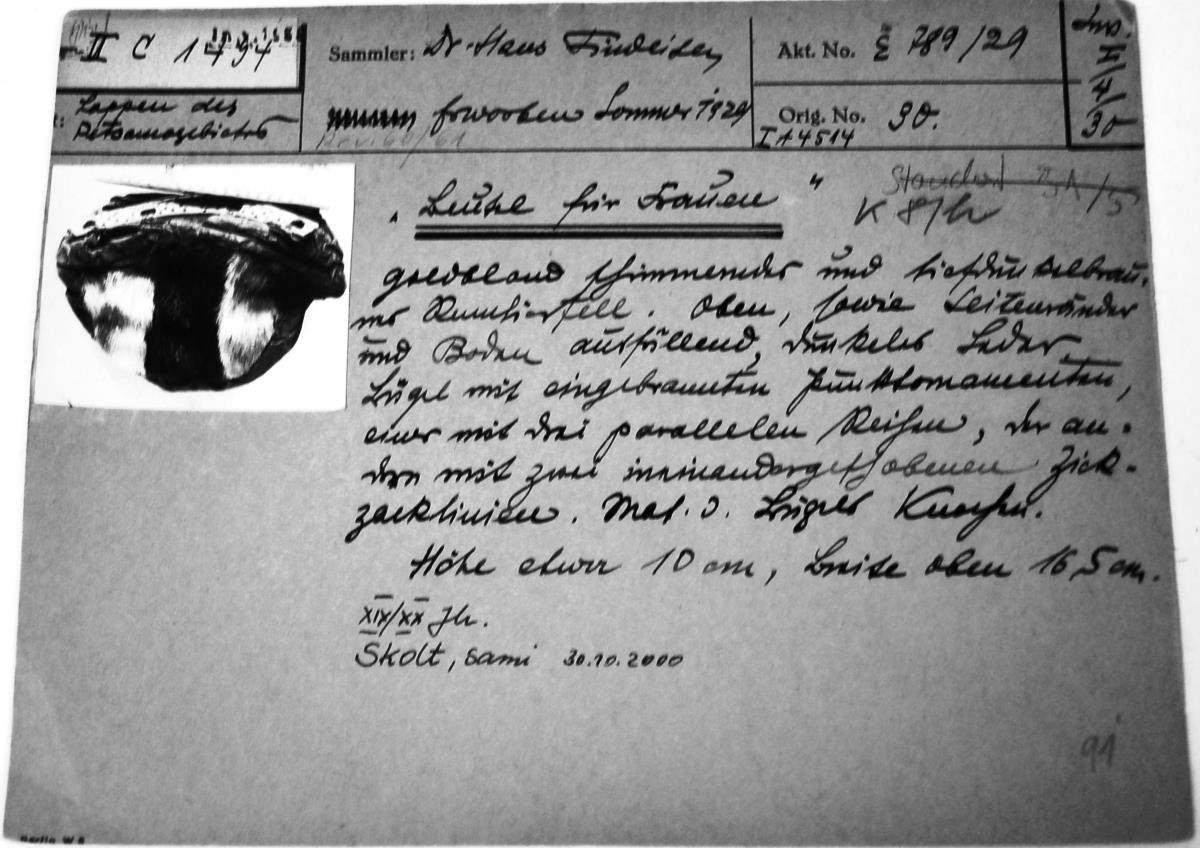 II C 1794
Sammler: Dr. Hans Findeisen
Akt. No. E 789/29
Inv.
I
4
30
Lappen des
Petsamogebietes
erworben Sommer 1929
Orig. No. 30.
I A 4514
Rev. 60/61
„Beutel für Frauen"
K 8/h
goldbland schimmerndes und tiefdunkelbrau-
nes Renntierfell. Oben, sowie Seitenränder
und Boden ausfüllend, dunkeles Leder
Bügel mit eingebrannten Punktornamenten,
einer mit drei parallelen Reihen, der an-
dre mit zwei ineinandergeschobenen Zick-
zacklinien. Mat. d. Bügels Knochen.
Höhe etwa 10 cm, Breite oben 16,5 cm.
XIX/XX Jh.
Skolt, sami 30.10.2000
91